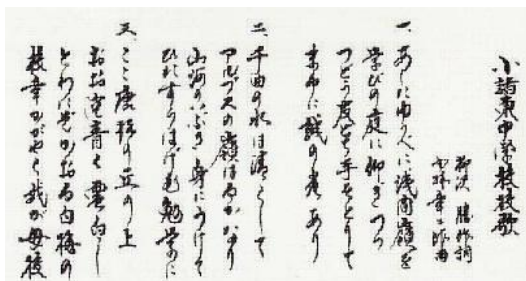 小諸東中学校校歌
勝作詞
小林幸 作曲
一、あしたゆうべに浅間嶺を
学びの庭に仰ぎつつ
つどう友どち手をとりて
あり
二、千曲の水は清くして
アルプスの嶺はるかなり
山河のいぶき身にうけて
ひたすらはげむ勉学に
三、ここ唐松の丘の上
雲白し
とわにぞかおる白梅の
校章かがやく我が母校